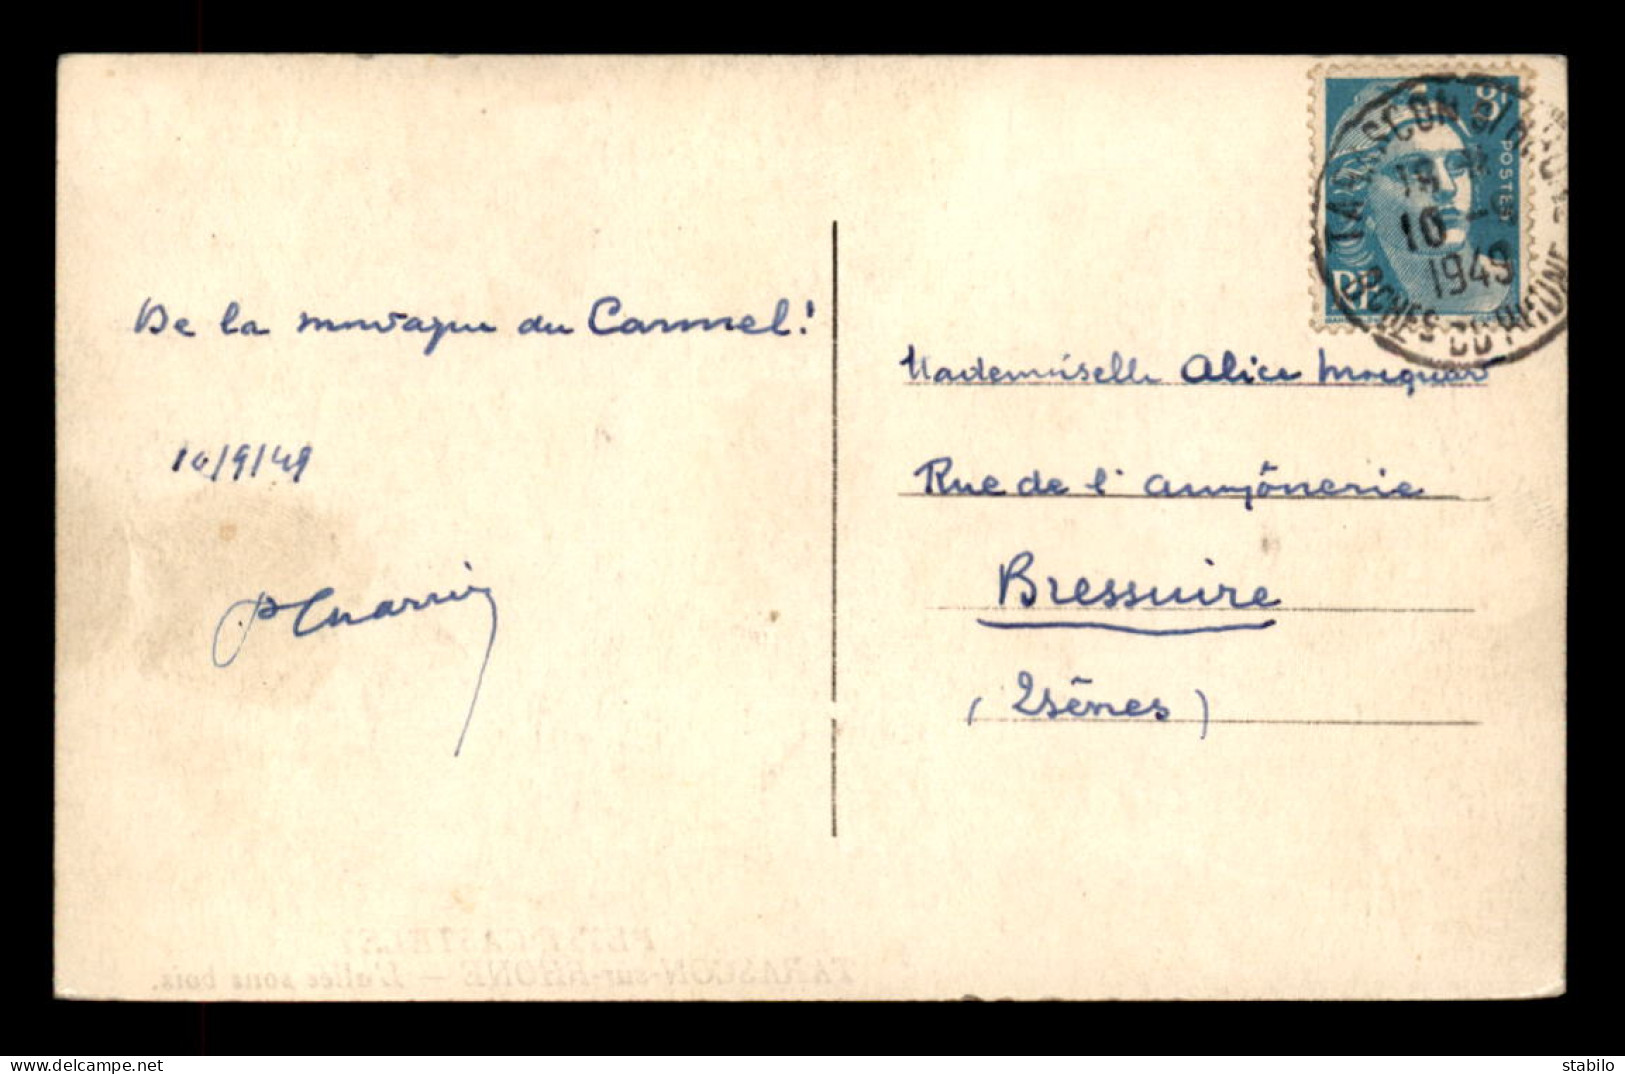 8F
POSTES
RF
TARASCON S/ RHONE
10 -9
1949
BCHES DU RHONE
De la montagne du Carmel!
10/9/49
P Charrier
Mademoiselle Alice
Rue de l'aumônerie
Bressuire
(2 Sèvres)
PETIT CASTELET
TARASCON-sur-RHONE — L'allée sous bois.
delcampe.net
stabilo